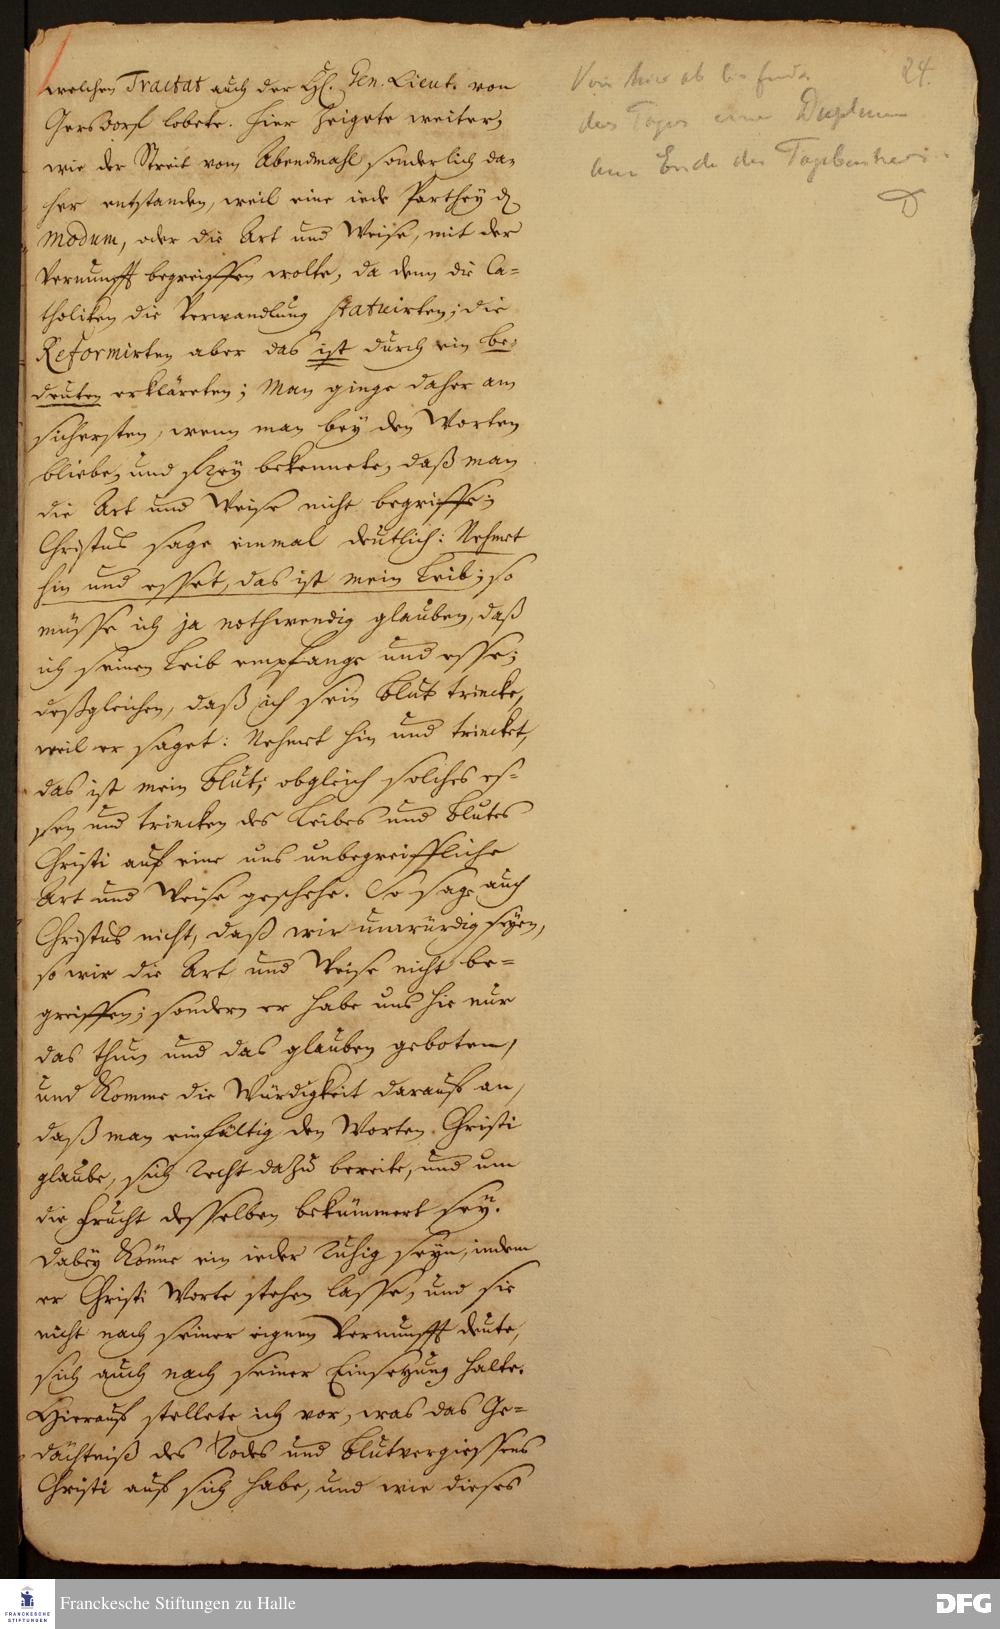 welchen Tractat auch der H. Gen. Lieut. von
Gersdorf lobete. Hier zeigete weiter,
wie der Streit vom Abendmahl sonderlich da-
her entstanden, weil eine iede Parthey d.
modum, oder die Art und Weise, mit der
Vernunfft begreiffen wolte, da denn die Ca-
tholiken die Verwandlung statuirten; die
Reformirten aber das ist durch ein be-
deuten erkläreten; Man ginge daher am
sichersten, wenn man bey den Worten
bliebe, und frey bekennete, daß man
die Art und Weise nicht begriffe;
Christus sage einmal deutlich: Nehmet
hin und esset, das ist mein Leib; so
müsse ich ja nothwendig glauben, daß
ich seinen Leib empfange und esse;
deßgleichen, daß ich sein Blut trincke,
weil er saget: Nehmet hin und trincket,
das ist mein Blut; obgleich solches es-
sen und trincken des Leibes und Blutes
Christi auf eine uns unbegreiffliche
Art und Weise geschehe. So sage auch
Christus nicht, daß wir unwürdig seyen,
so wir die Art und Weise nicht be-
greiffen; sondern er habe uns hie nur
das thun und das glauben geboten,
und komme die Würdigkeit darauf an,
daß man einfältig den Worten Christi
glaube, sich recht dazu bereite, und um
die Frucht desselben bekümmert sey.
Dabey könne ein ieder ruhig seyn, indem
er Christi Worte stehen lasse, und sie
nicht nach seiner eignen Vernunfft deute,
sich auch nach seiner Einsetzung halte.
Hierauf stellete ich vor, was das Ge-
dächtniß des Todes und Blutvergiessens
Christi auf sich habe, und wie dieses
24.
Von hier ab bis Ende
des Tages eine Duplum
am Ende des Tagebuches
Franckesche Stiftungen zu Halle
FRANCKESCHE
STIFTUNGEN
DFG